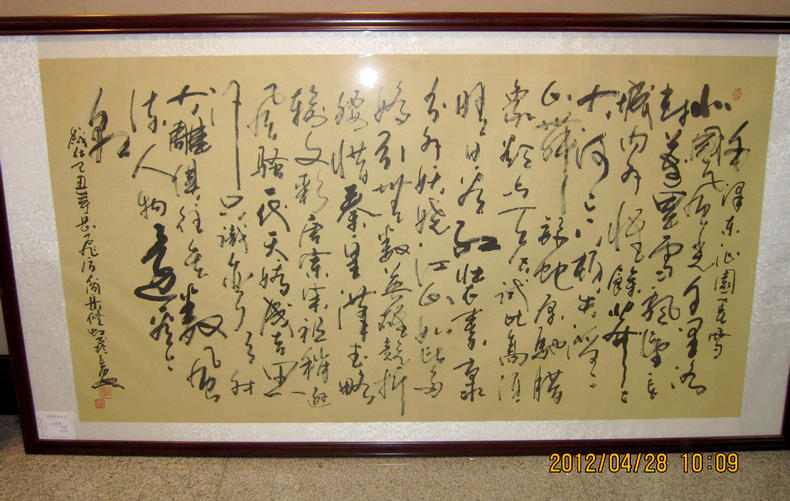 毛泽东沁園春雪
北國风光千里冰
封萬里雪飘望长
城内外惟餘莽莽
大河上下顿失滔滔
山舞银蛇原驰腊
象欲与天公试比高须
晴日看红装素裹
分外妖娆江山如此多
娇引无数英雄竞折
腰惜秦皇漢武略
输文彩唐宗宋祖稍逊
风骚一代天娇成吉思
汗只识弯弓射
大雕俱往矣数风
流人物还看今
朝
岁在己丑年
2012/04/28 10:09